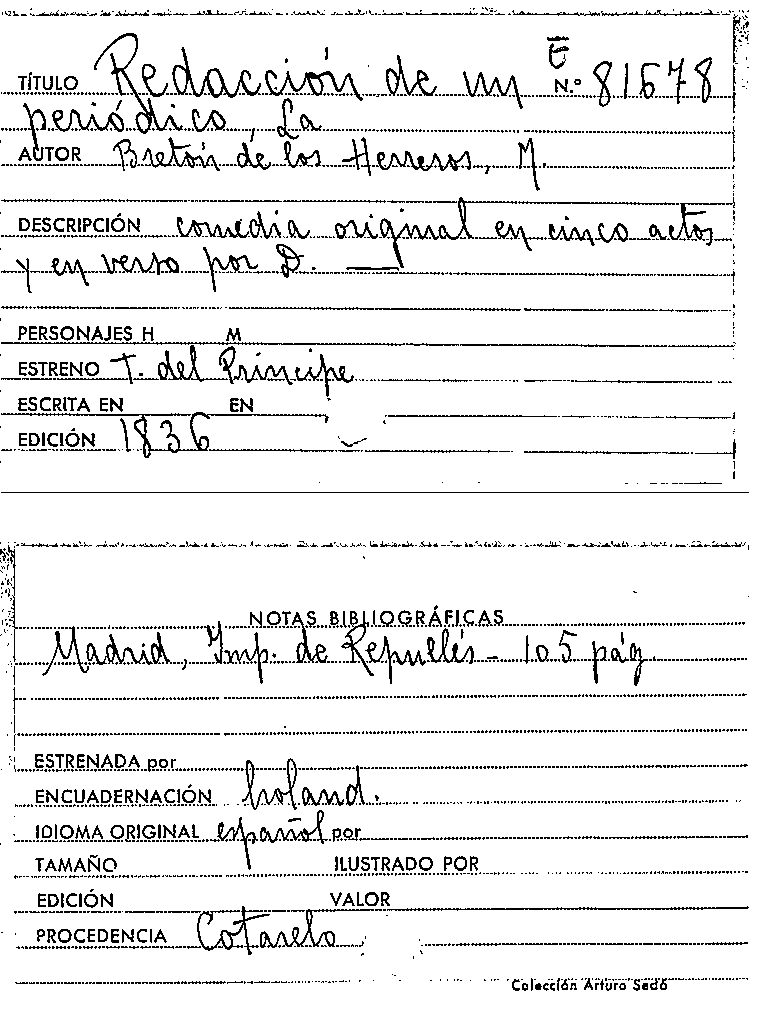 TÍTULO Redacción de un E N.º 81678
periódico, La
AUTOR Bretón de los Herreros, M.
DESCRIPCIÓN comedia original en cinco actos
y en verso por D. ___
PERSONAJES H M
ESTRENO T. del Príncipe
ESCRITA EN EN
EDICIÓN 1836
NOTAS BIBLIOGRÁFICAS
Madrid, Imp. de Repullés - 105 pág.
ESTRENADA por
ENCUADERNACIÓN holand.
IDIOMA ORIGINAL español por
TAMAÑO ILUSTRADO POR
EDICIÓN VALOR
PROCEDENCIA Cotarelo
Colección Arturo Sedó